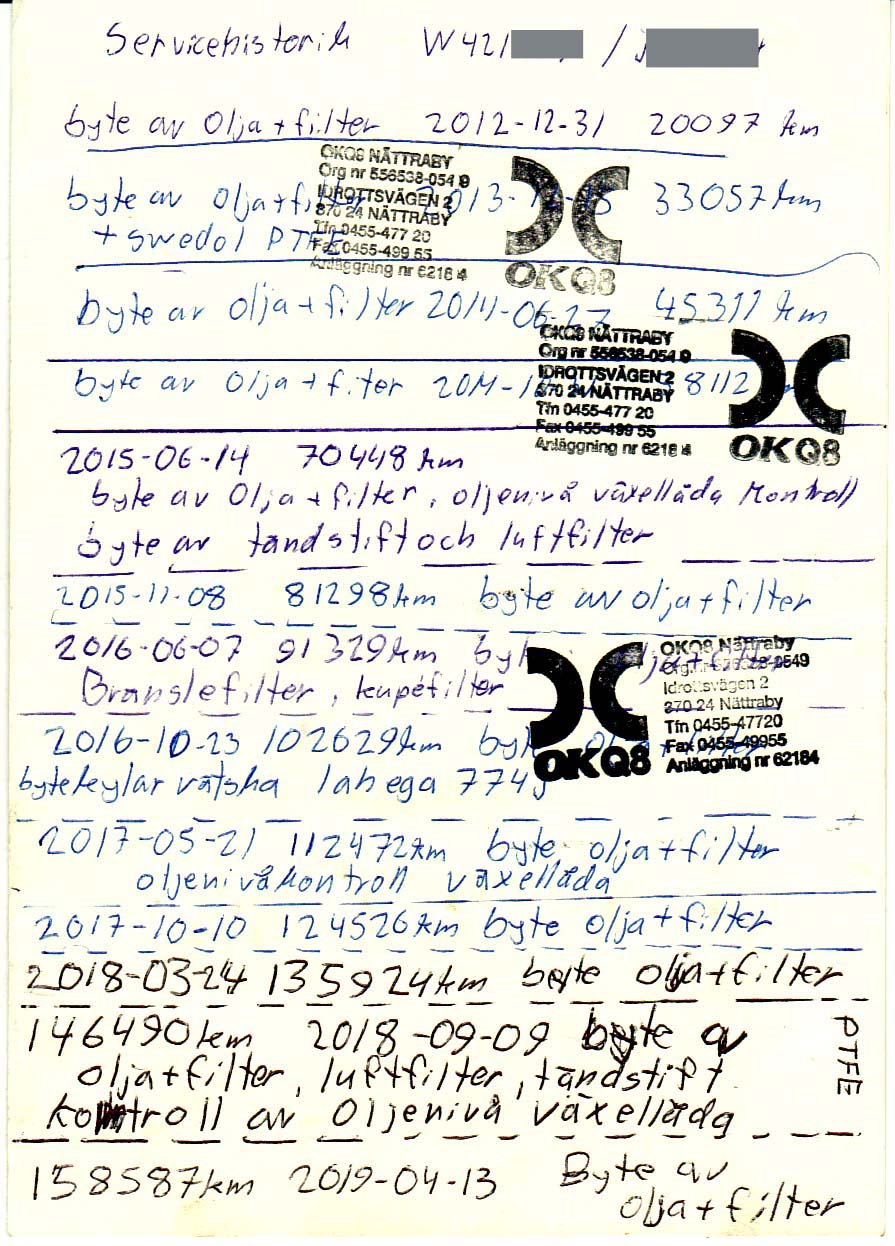 Servicehistorik W421 /
byte av olja + filter 2012-12-31 20097 km
OKQ8 NÄTTRABY
Org nr 556538-054 9
IDROTTSVÄGEN 2
370 24 NÄTTRABY
Tfn 0455-477 20
Fax 0455-499 55
Anläggning nr 6218 4
OKQ8
byte av olja + filter 2013-12- 33057 km
+ swedol PTFE
byte av olja + filter 2014-06-27 45311 km
OKQ8 NÄTTRABY
Org nr 556538-054 9
IDROTTSVÄGEN 2
370 24 NÄTTRABY
Tfn 0455-477 20
Fax 0455-499 55
Anläggning nr 6218 4
OKQ8
byte av olja + filter 8112
2015-06-14 70448 km
byte av olja + filter, oljenivå växellåda kontroll
byte av tändstift och luftfilter
2015-11-08 81298 km byte av olja + filter
2016-06-07 91329 km olja + filter
Bränslefilter, kupéfilter
OKQ8
OKQ8 Nättraby
Idrottsvägen 2
370 24 Nättraby
Tfn 0455-47720
Fax 0455-49955
Anläggning nr 62184
2016-10-23 102629 km
byte kylar vätska lahega 774
2017-05-21 112472 km byte olja + filter
oljenivåkontroll växellåda
2017-10-10 124526 km byte olja + filter
2018-03-24 135924 km byte olja + filter
146490 km 2018-09-09 byte a
olja + filter, luftfilter, tändstift
kontroll av oljenivå växellåda
PTFE
158587 km 2019-04-13 Byte av
olja + filter